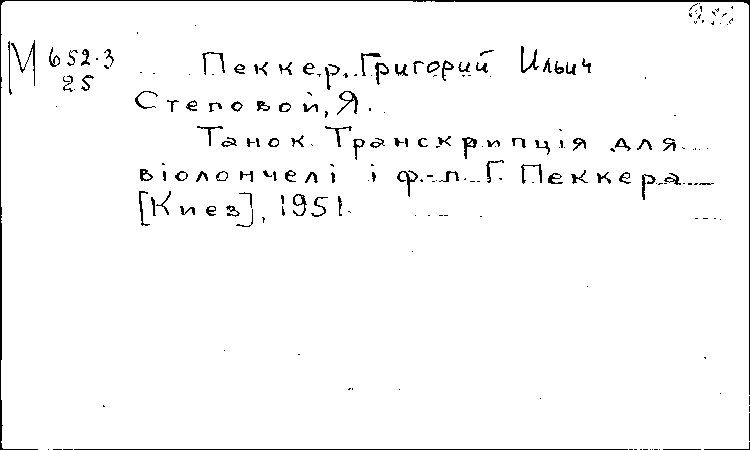 М 652-3
25
Пеккер, Григорий Ильич
Степовой, Я.
Танок. Транскрипція для
віолончелі і ф.-п. Г. Пеккера
[Киев], 1951.